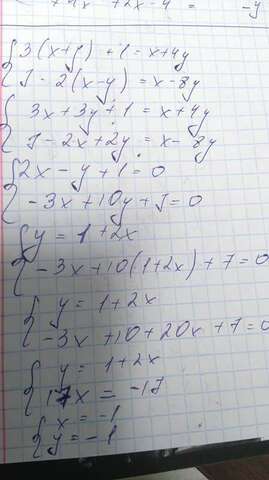 3(x+y)+1=x+4y
7-2(x-y)=x-8y
3x+3y+1=x+4y
7-2x+2y=x-8y
2x-y+1=0
-3x+10y+7=0
y=1+2x
-3x+10(1+2x)+7=0
y=1+2x
-3x+10+20x+7=0
y=1+2x
17x=-17
x=-1
y=-1